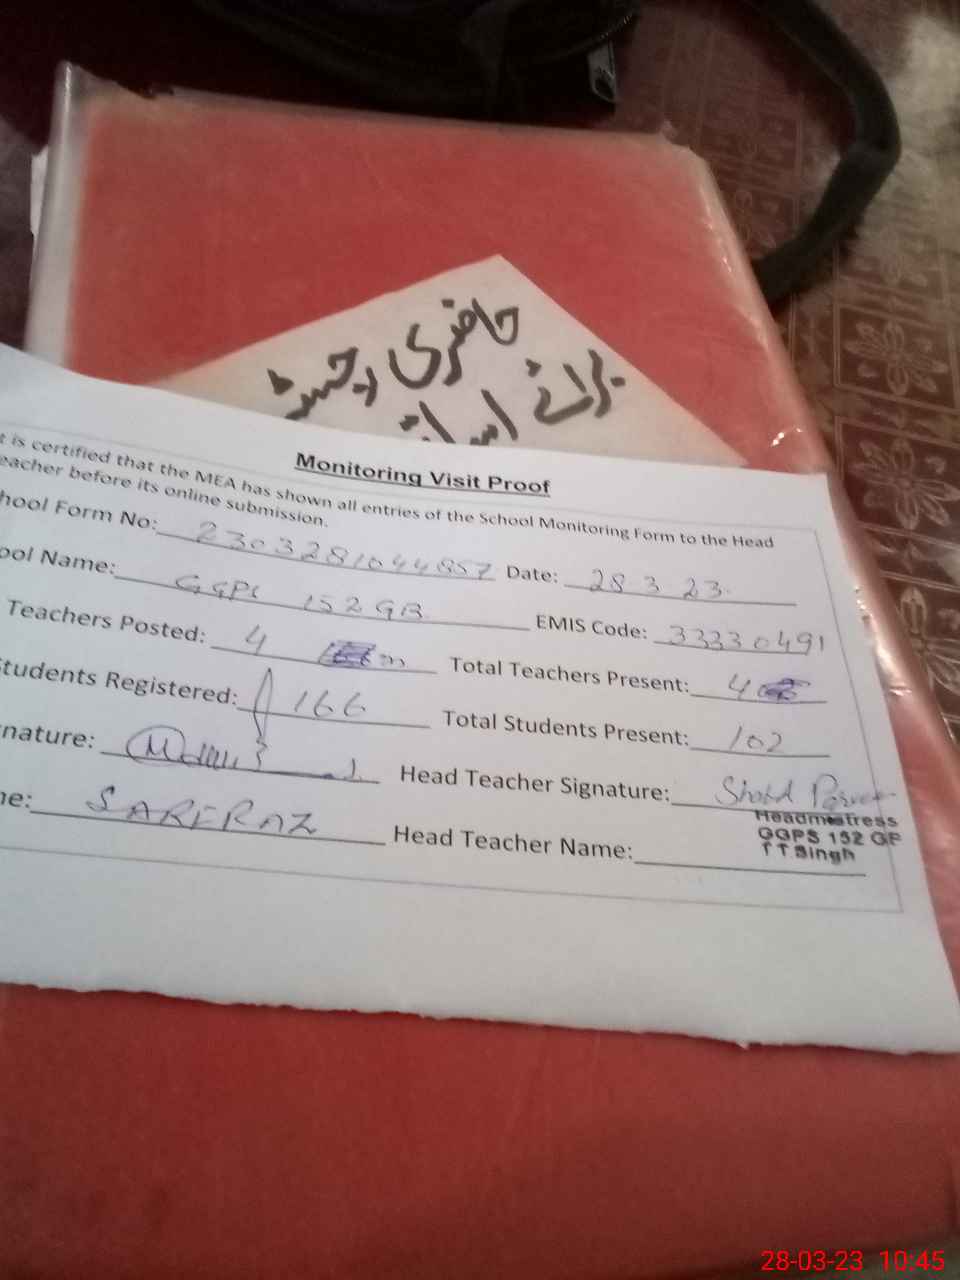 حاضری رجسٹر
برائے
Monitoring Visit Proof
t is certified that the MEA has shown all entries of the School Monitoring Form to the Head
eacher before its online submission.
hool Form No: 2303281044857 Date: 28 3 23
ool Name: GGPS 152 GB EMIS Code: 33330491
Teachers Posted: 4 Total Teachers Present: 4
tudents Registered: 166 Total Students Present: 102
nature: Head Teacher Signature:
ne: SARFRAZ Head Teacher Name:
Headmistress
GGPS 152 GB
T T.Singh
28-03-23 10:45